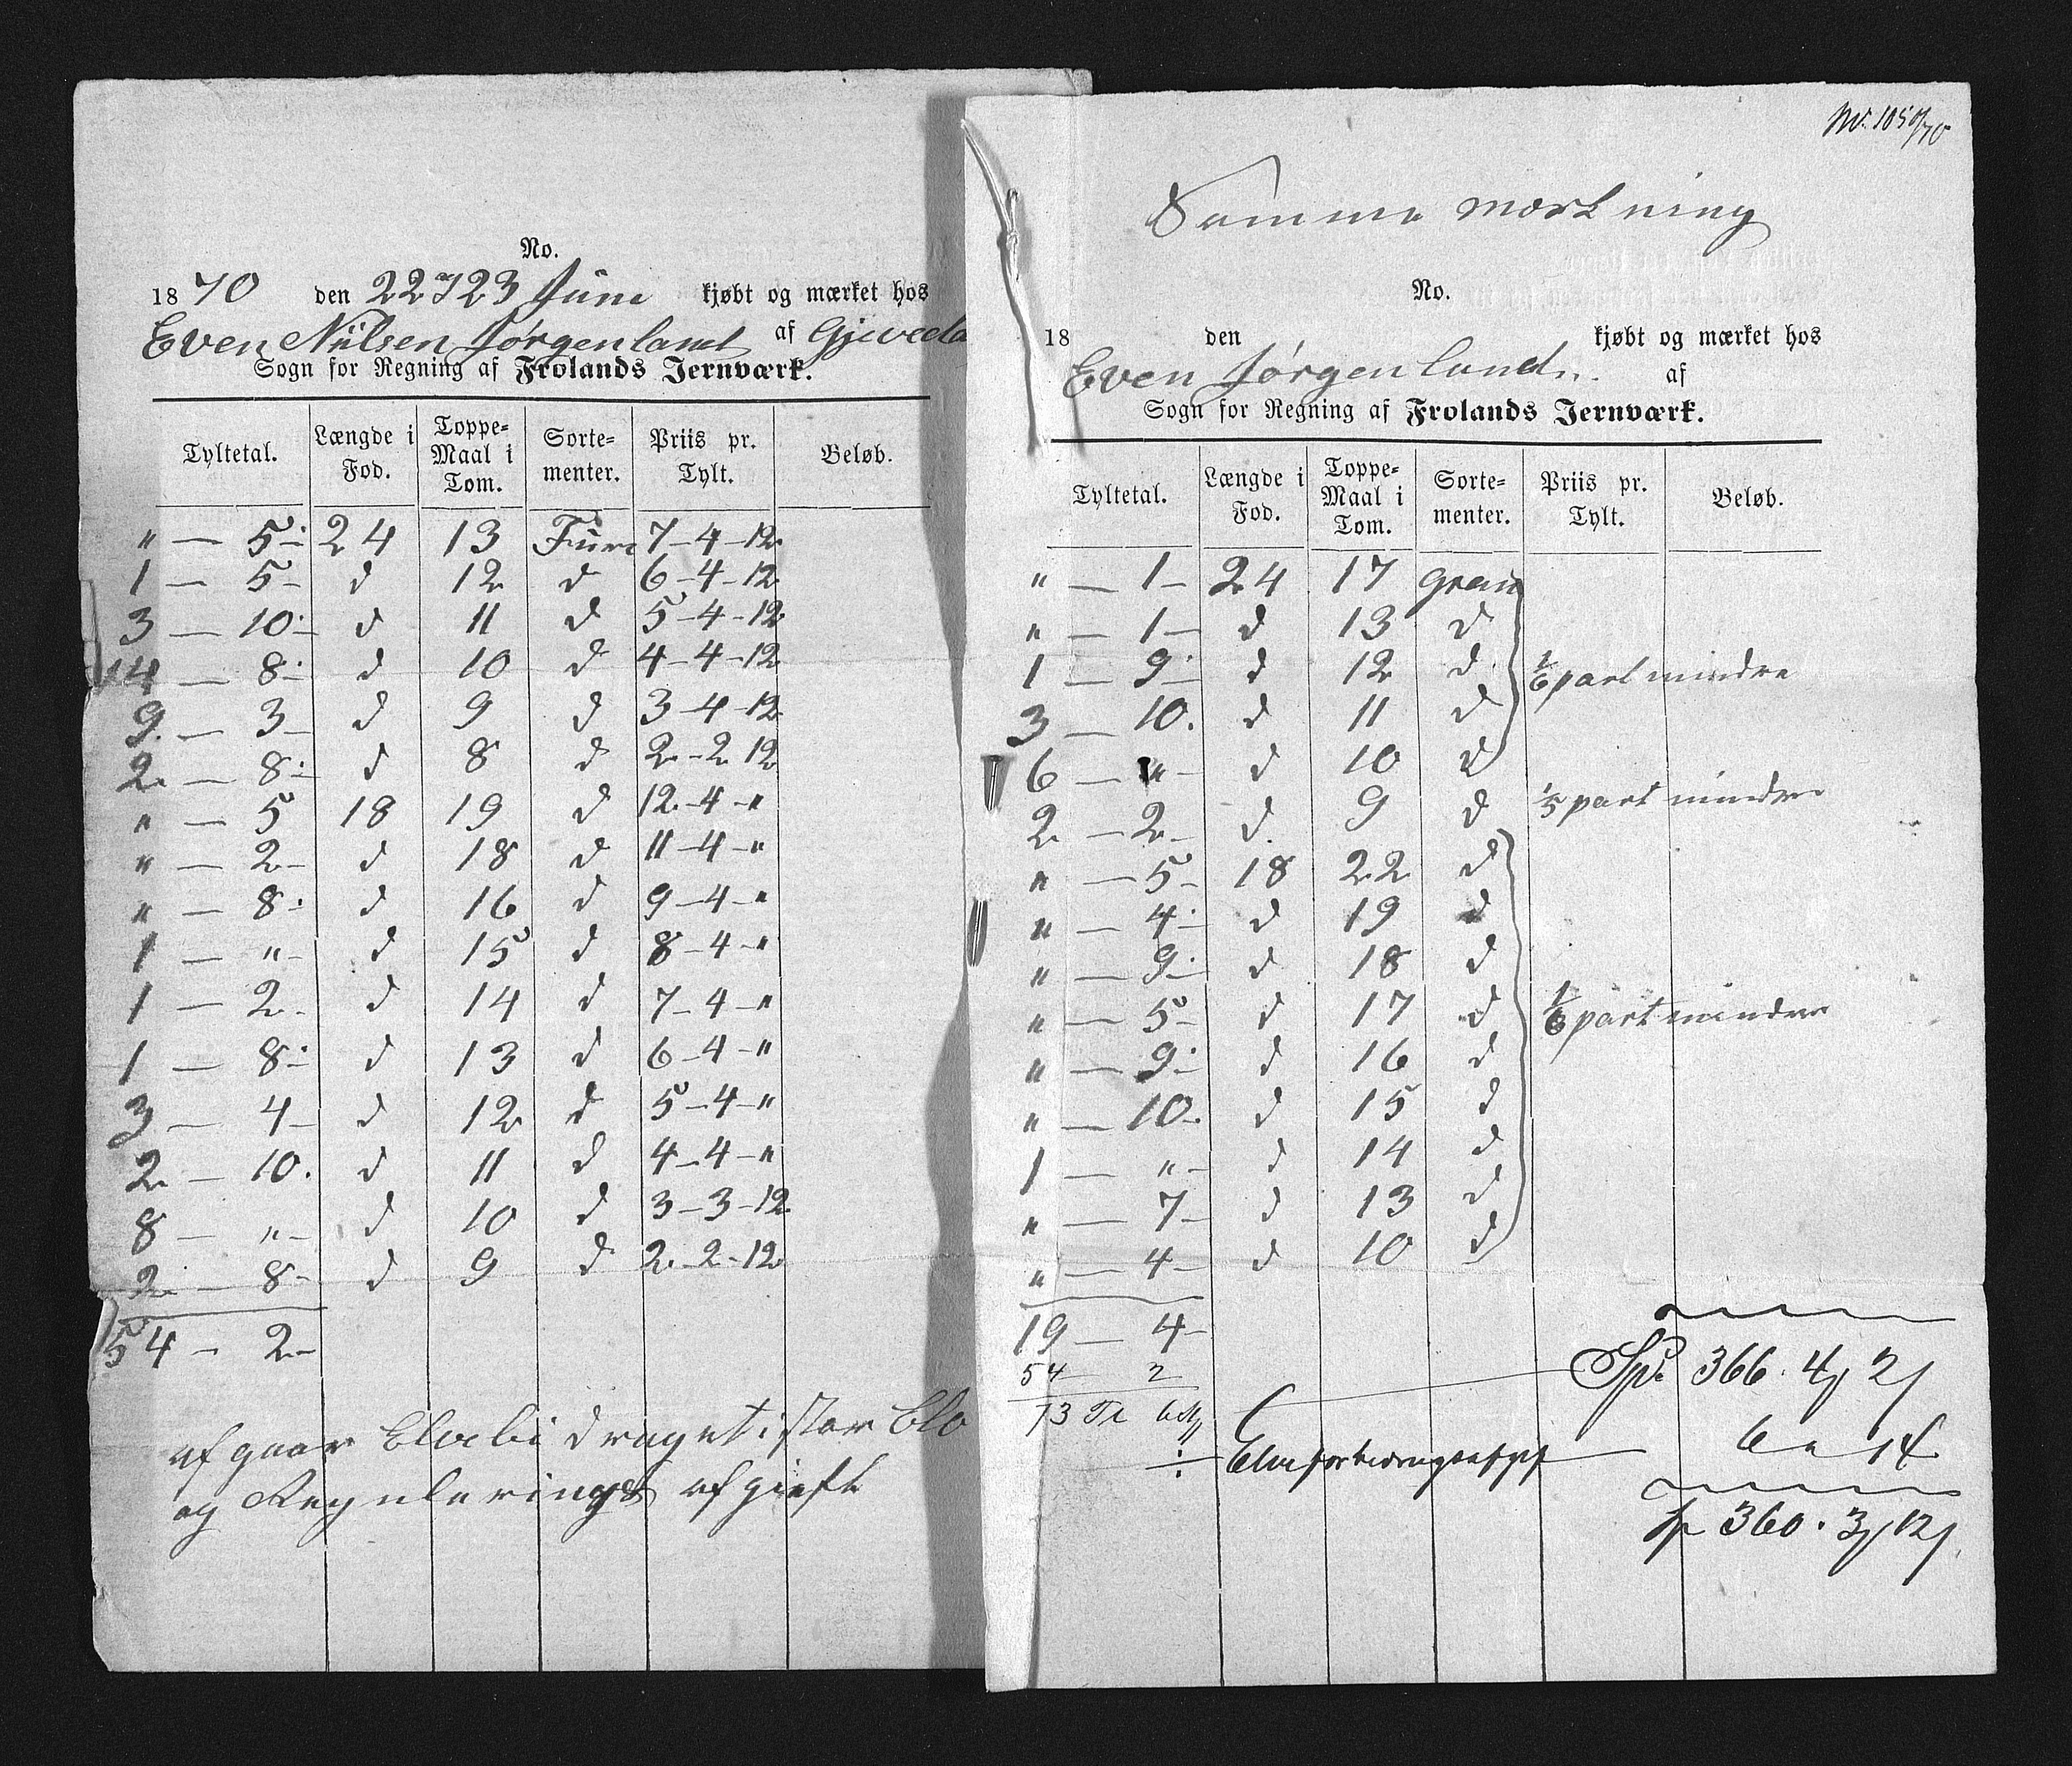 No.
1870 den 22 & 23 Juni kjøbt og mærket hos
Even Nilsen Jørgenland af Gjøveda
Sogn for Regning af Frolands Jernværk.
Tyltetal. Længde i Fod. Toppe-Maal i Tom. Sorte-menter. Priis pr. Tylt. Beløb.
" — 5 24 13 Furu 7-4-12
1 — 5 d 12 d 6-4-12
3 — 10 d 11 d 5-4-12
14 — 8 d 10 d 4-4-12
9 — 3 d 9 d 3-4-12
2 — 8 d 8 d 2-2-12
" — 5 18 19 d 12-4-"
" — 2 d 18 d 11-4-"
" — 8 d 16 d 9-4-"
1 — " d 15 d 8-4-"
1 — 2 d 14 d 7-4-"
1 — 8 d 13 d 6-4-"
3 — 4 d 12 d 5-4-"
2 — 10 d 11 d 4-4-"
8 — " d 10 d 3-3-12
2 — 8 d 9 d 2-2-12
54 - 2
afgaar Elvebidraget i stor Elv
og Regulerings afgieft
No. 105 a/70
Samme mærkning
No.
18 den kjøbt og mærket hos
Even Jørgenland af
Sogn for Regning af Frolands Jernværk.
Tyltetal. Længde i Fod. Toppe-Maal i Tom. Sorte-menter. Priis pr. Tylt. Beløb.
" — 1 24 17 gran
" — 1 d 13 d
1 — 9 d 12 d 1/6 part mindre
3 — 10 d 11 d
6 — " d 10 d
2 — 2 d 9 d 1/5 part mindre
" — 5 18 22 d
" — 4 d 19 d
" — 9 d 18 d
" — 5 d 17 d 1/6 part mindre
" — 9 d 16 d
" — 10 d 15 d
1 — " d 14 d
" — 7 d 13 d
" — 4 d 10 d
19 — 4
54 2
73 Tl 6
Spd. 366. 4 2
÷ Elveforbedringsafgift 6 " 14
Sp 360. 3 12